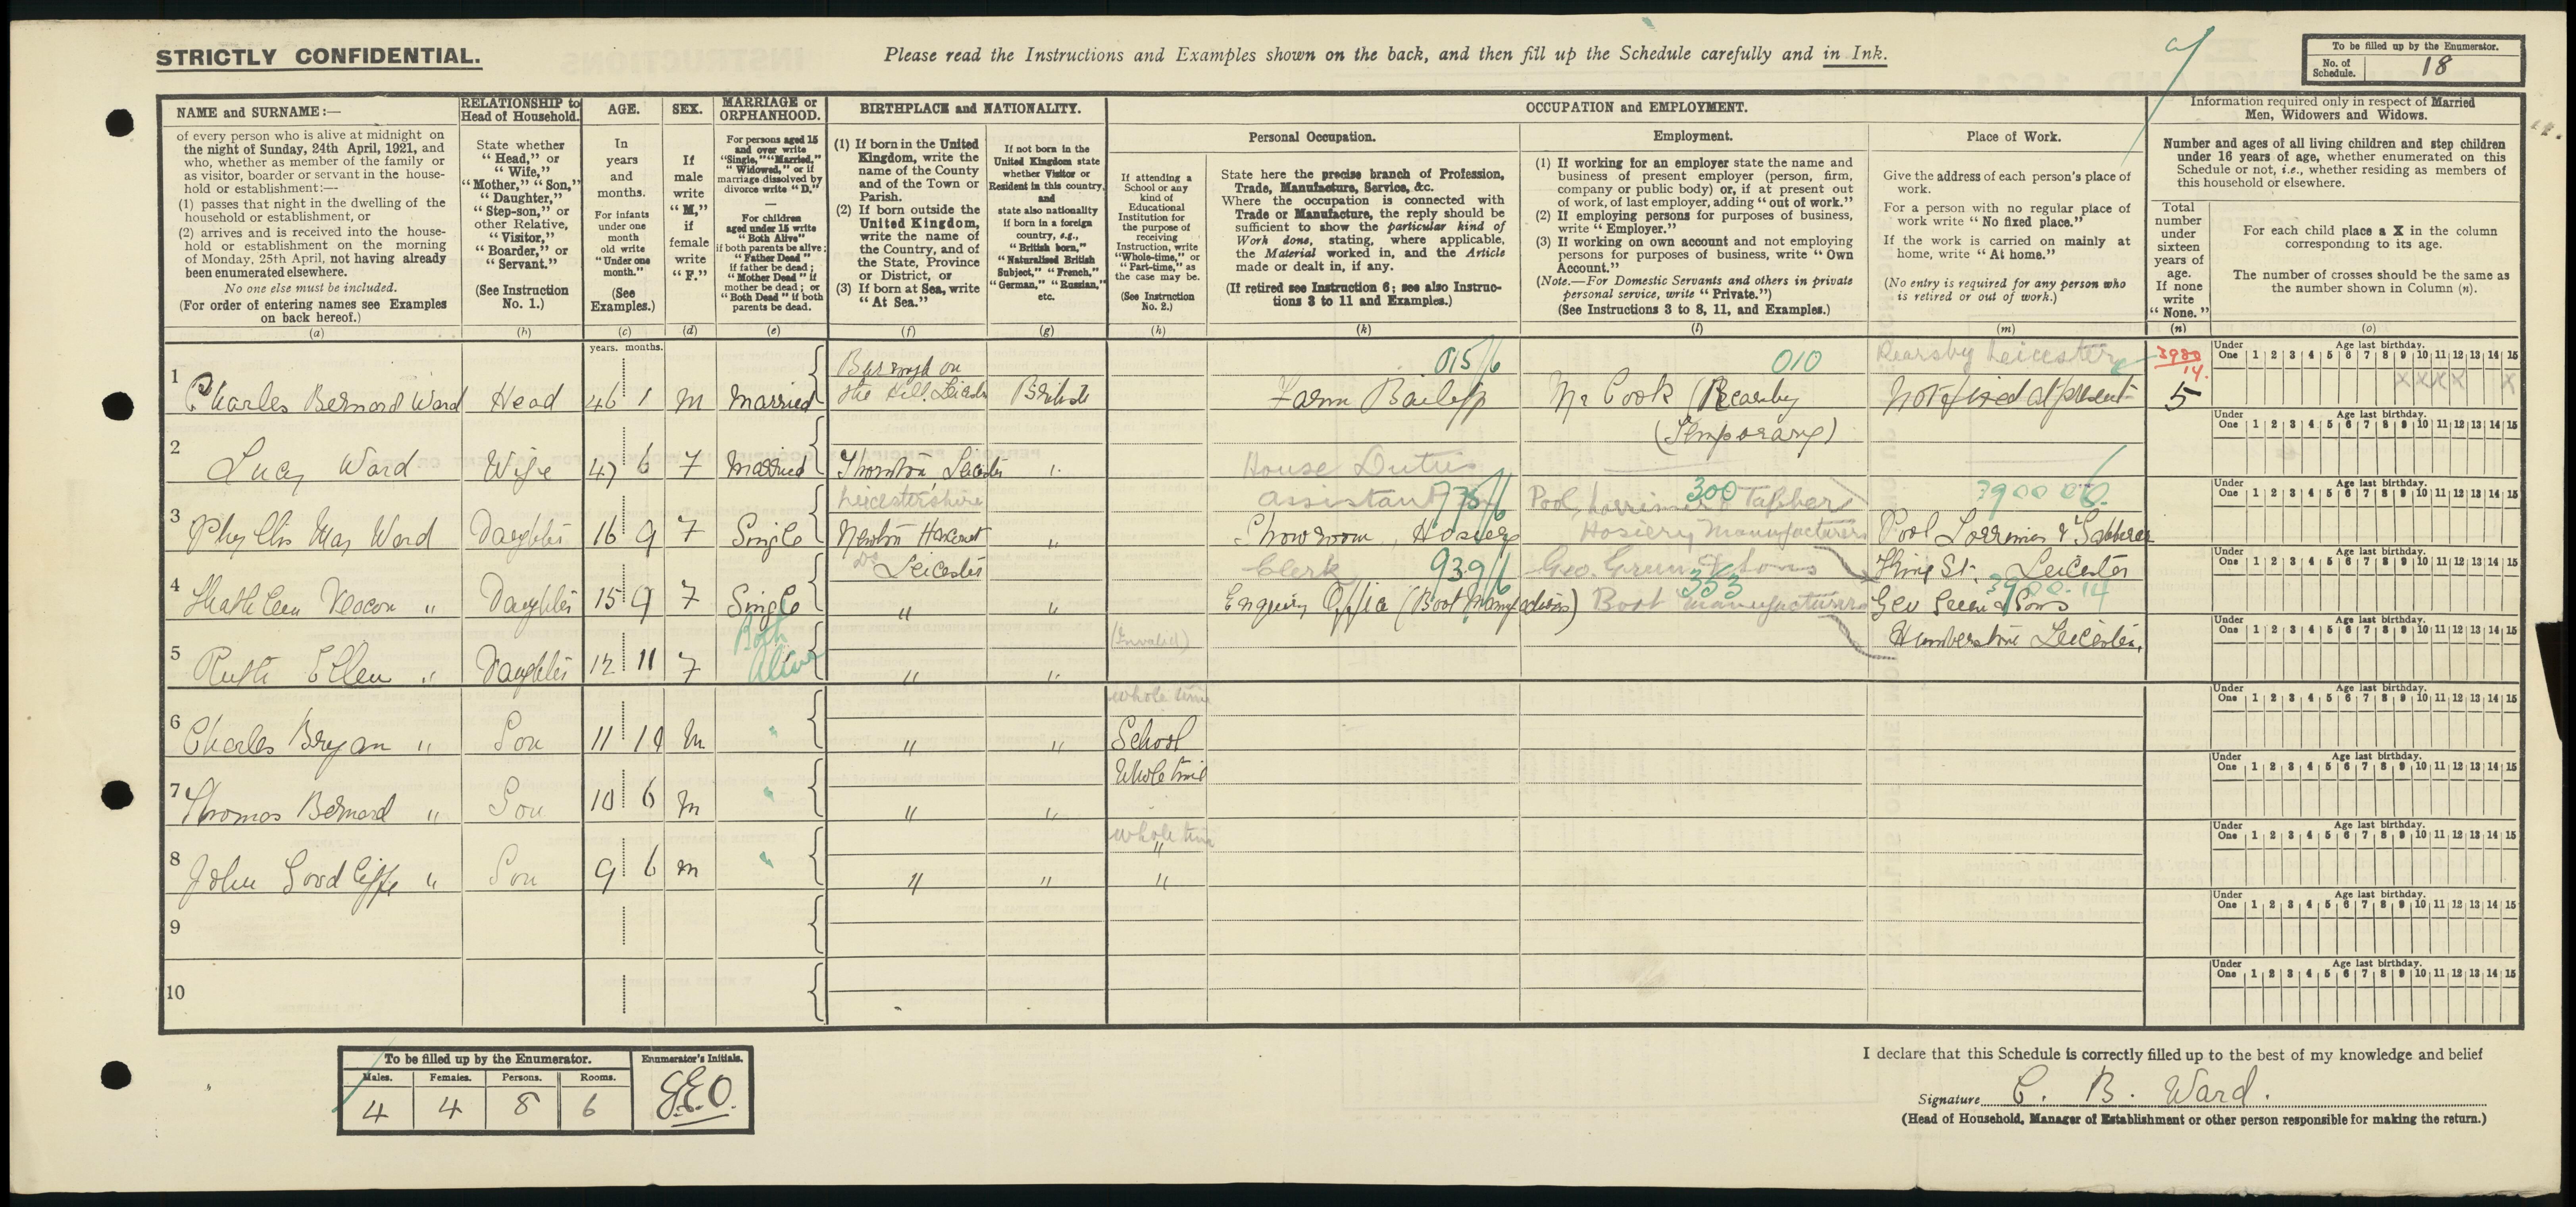 STRICTLY CONFIDENTIAL.
Please read the Instructions and Examples shown on the back, and then fill up the Schedule carefully and in Ink.
To be filled up by the Enumerator.
No. of Schedule. 18
NAME and SURNAME:—
of every person who is alive at midnight on
the night of Sunday, 24th April, 1921, and
who, whether as member of the family or
as visitor, boarder or servant in the house-
hold or establishment:—
(1) passes that night in the dwelling of the
household or establishment, or
(2) arrives and is received into the house-
hold or establishment on the morning
of Monday, 25th April, not having already
been enumerated elsewhere.
No one else must be included.
(For order of entering names see Examples
on back hereof.)
(a)
RELATIONSHIP to
Head of Household.
State whether
"Head," or
"Wife,"
"Mother," "Son,"
"Daughter,"
"Step-son," or
other Relative,
"Visitor,"
"Boarder," or
"Servant."
(See Instruction
No. 1.)
(b)
AGE.
In
years
and
months.
For infants
under one
month
old write
"Under one
month."
(See
Examples.)
(c)
SEX.
If
male
write
"M,"
if
female
write
"F."
(d)
MARRIAGE or
ORPHANHOOD.
For persons aged 15
and over write
"Single," "Married,"
"Widowed," or if
marriage dissolved by
divorce write "D."
For children
aged under 15 write
"Both Alive"
if both parents be alive;
"Father Dead"
if father be dead;
"Mother Dead" if
mother be dead; or
"Both Dead" if both
parents be dead.
(e)
BIRTHPLACE and NATIONALITY.
(1) If born in the United
Kingdom, write the
name of the County
and of the Town or
Parish.
(2) If born outside the
United Kingdom,
write the name of
the Country, and of
the State, Province
or District, or
(3) If born at Sea, write
"At Sea."
(f)
If not born in the
United Kingdom state
whether Visitor or
Resident in this country,
and
state also nationality
if born in a foreign
country, e.g.,
"British born,"
"Naturalised British
Subject," "French,"
"German," "Russian,"
etc.
(g)
OCCUPATION and EMPLOYMENT.
If attending a
School or any
kind of
Educational
Institution for
the purpose of
receiving
Instruction, write
"Whole-time," or
"Part-time," as
the case may be.
(See Instruction
No. 2.)
(h)
Personal Occupation.
State here the precise branch of Profession,
Trade, Manufacture, Service, &c.
Where the occupation is connected with
Trade or Manufacture, the reply should be
sufficient to show the particular kind of
Work done, stating, where applicable,
the Material worked in, and the Article
made or dealt in, if any.
(If retired see Instruction 6; see also Instruc-
tions 3 to 11 and Examples.)
(k)
Employment.
(1) If working for an employer state the name and
business of present employer (person, firm,
company or public body) or, if at present out
of work, of last employer, adding "out of work."
(2) If employing persons for purposes of business,
write "Employer."
(3) If working on own account and not employing
persons for purposes of business, write "Own
Account."
(Note.—For Domestic Servants and others in private
personal service, write "Private.")
(See Instructions 3 to 8, 11, and Examples.)
(l)
Place of Work.
Give the address of each person's place of
work.
For a person with no regular place of
work write "No fixed place."
If the work is carried on mainly at
home, write "At home."
(No entry is required for any person who
is retired or out of work.)
(m)
Information required only in respect of Married
Men, Widowers and Widows.
Number and ages of all living children and step children
under 16 years of age, whether enumerated on this
Schedule or not, i.e., whether residing as members of
this household or elsewhere.
Total
number
under
sixteen
years of
age.
If none
write
"None."
(n)
For each child place a X in the column
corresponding to its age.
The number of crosses should be the same as
the number shown in Column (n).
(o)
years. months.
Under One Age last birthday. 1 2 3 4 5 6 7 8 9 10 11 12 13 14 15
1 Charles Bernard Ward Head 46 1 M Married Burrough on the Hill, Leicester British Farm Bailiff 015/6 Mr Cook (Rearsby (Temporary) 010 Rearsby Leicester Not fixed at present 3900/14. 5 X X X X X
2 Lucy Ward Wife 47 6 F Married Thornton, Leicester " House Duties
3 Phyllis May Ward Daughter 16 9 F Single Leicestershire Newton Harcourt " Assistant Showroom, Hosiery 775/6 Pool, Lorrimer & Tabberer Hosiery Manufacturers 300 Pool Lorrimer & Tabberer King St. Leicester
4 Kathleen Deacon " Daughter 15 9 F Single Do Leicester " " Clerk 939/6 Enquiry Office (Boot Manufacturers) Geo. Green & Sons Boot Manufacturers 353 Geo Green & Sons Humberstone Leicester. 3900.14
5 Ruth Ellen " Daughter 12 11 F Both Alive " " (Invalid)
6 Charles Bryan " Son 11 10 M " " " whole time School
7 Thomas Bernard " Son 10 6 M " " " Whole time
8 John Goodliffe " Son 9 6 M " " " whole time " "
9
10
To be filled up by the Enumerator.
Males. Females. Persons. Rooms.
4 4 8 6
Enumerator's Initials.
G.E.O.
I declare that this Schedule is correctly filled up to the best of my knowledge and belief
Signature C. B. Ward.
(Head of Household, Manager of Establishment or other person responsible for making the return.)